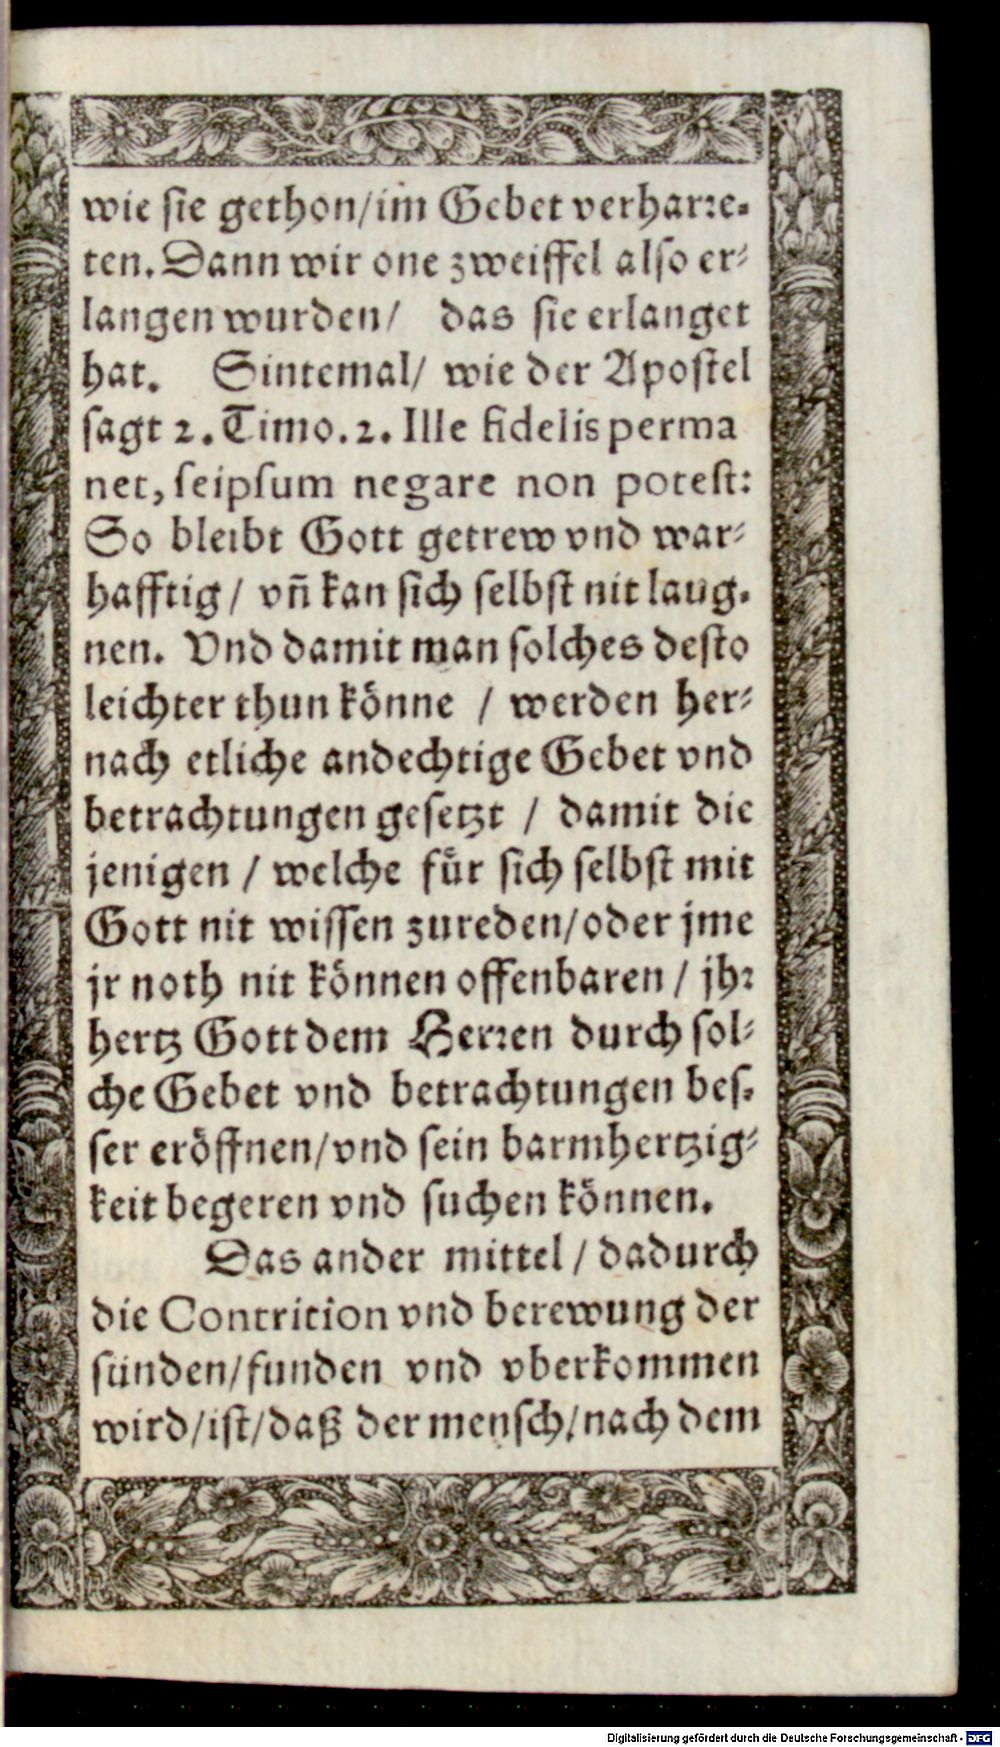 wie sie gethon/im Gebet verharre-
ten. Dann wir one zweiffel also er-
langen wurden/ das sie erlanget
hat. Sintemal/ wie der Apostel
sagt 2. Timo. 2. Ille fidelis perma
net, seipsum negare non potest:
So bleibt Gott getrew vnd war-
hafftig / vñ kan sich selbst nit laug-
nen. Vnd damit man solches desto
leichter thun könne / werden her-
nach etliche andechtige Gebet vnd
betrachtungen gesetzt / damit die
jenigen / welche für sich selbst mit
Gott nit wissen zureden/oder jme
jr noth nit können offenbaren / jhr
hertz Gott dem Herren durch sol-
che Gebet vnd betrachtungen bes-
ser eröffnen/vnd sein barmhertzig-
keit begeren vnd suchen können.
Das ander mittel / dadurch
die Contrition vnd berewung der
sünden/funden vnd vberkommen
wird/ist/daß der mensch/nach dem
Digitalisierung gefördert durch die Deutsche Forschungsgemeinschaft - DFG